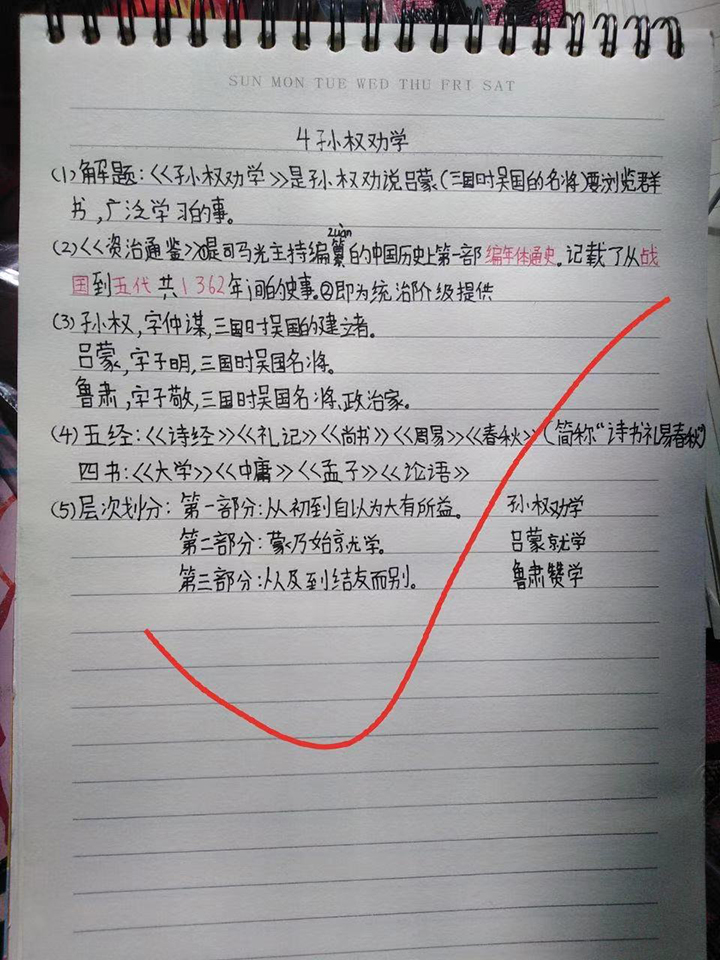 SUN MON TUE WED THU FRI SAT
4 孙权劝学
(1)解题:<<孙权劝学>>是孙权劝说吕蒙(三国时吴国的名将)要浏览群
书,广泛学习的事。
zuǎn
(2)<<资治通鉴>>①是司马光主持编纂的中国历史上第一部编年体通史。记载了从战
国到五代共1362年间的史事。②即为统治阶级提供
(3)孙权,字仲谋,三国时吴国的建立者。
吕蒙,字子明,三国时吴国名将。
鲁肃,字子敬,三国时吴国名将、政治家。
(4)五经:<<诗经>><<礼记>><<尚书>><<周易>><<春秋>>(简称“诗书礼易春秋”)
四书:<<大学>><<中庸>><<孟子>><<论语>>
(5)层次划分:第一部分:从初到自以为大有所益。 孙权劝学
第二部分:蒙乃始就学。 吕蒙就学
第三部分:从及到结友而别。 鲁肃赞学